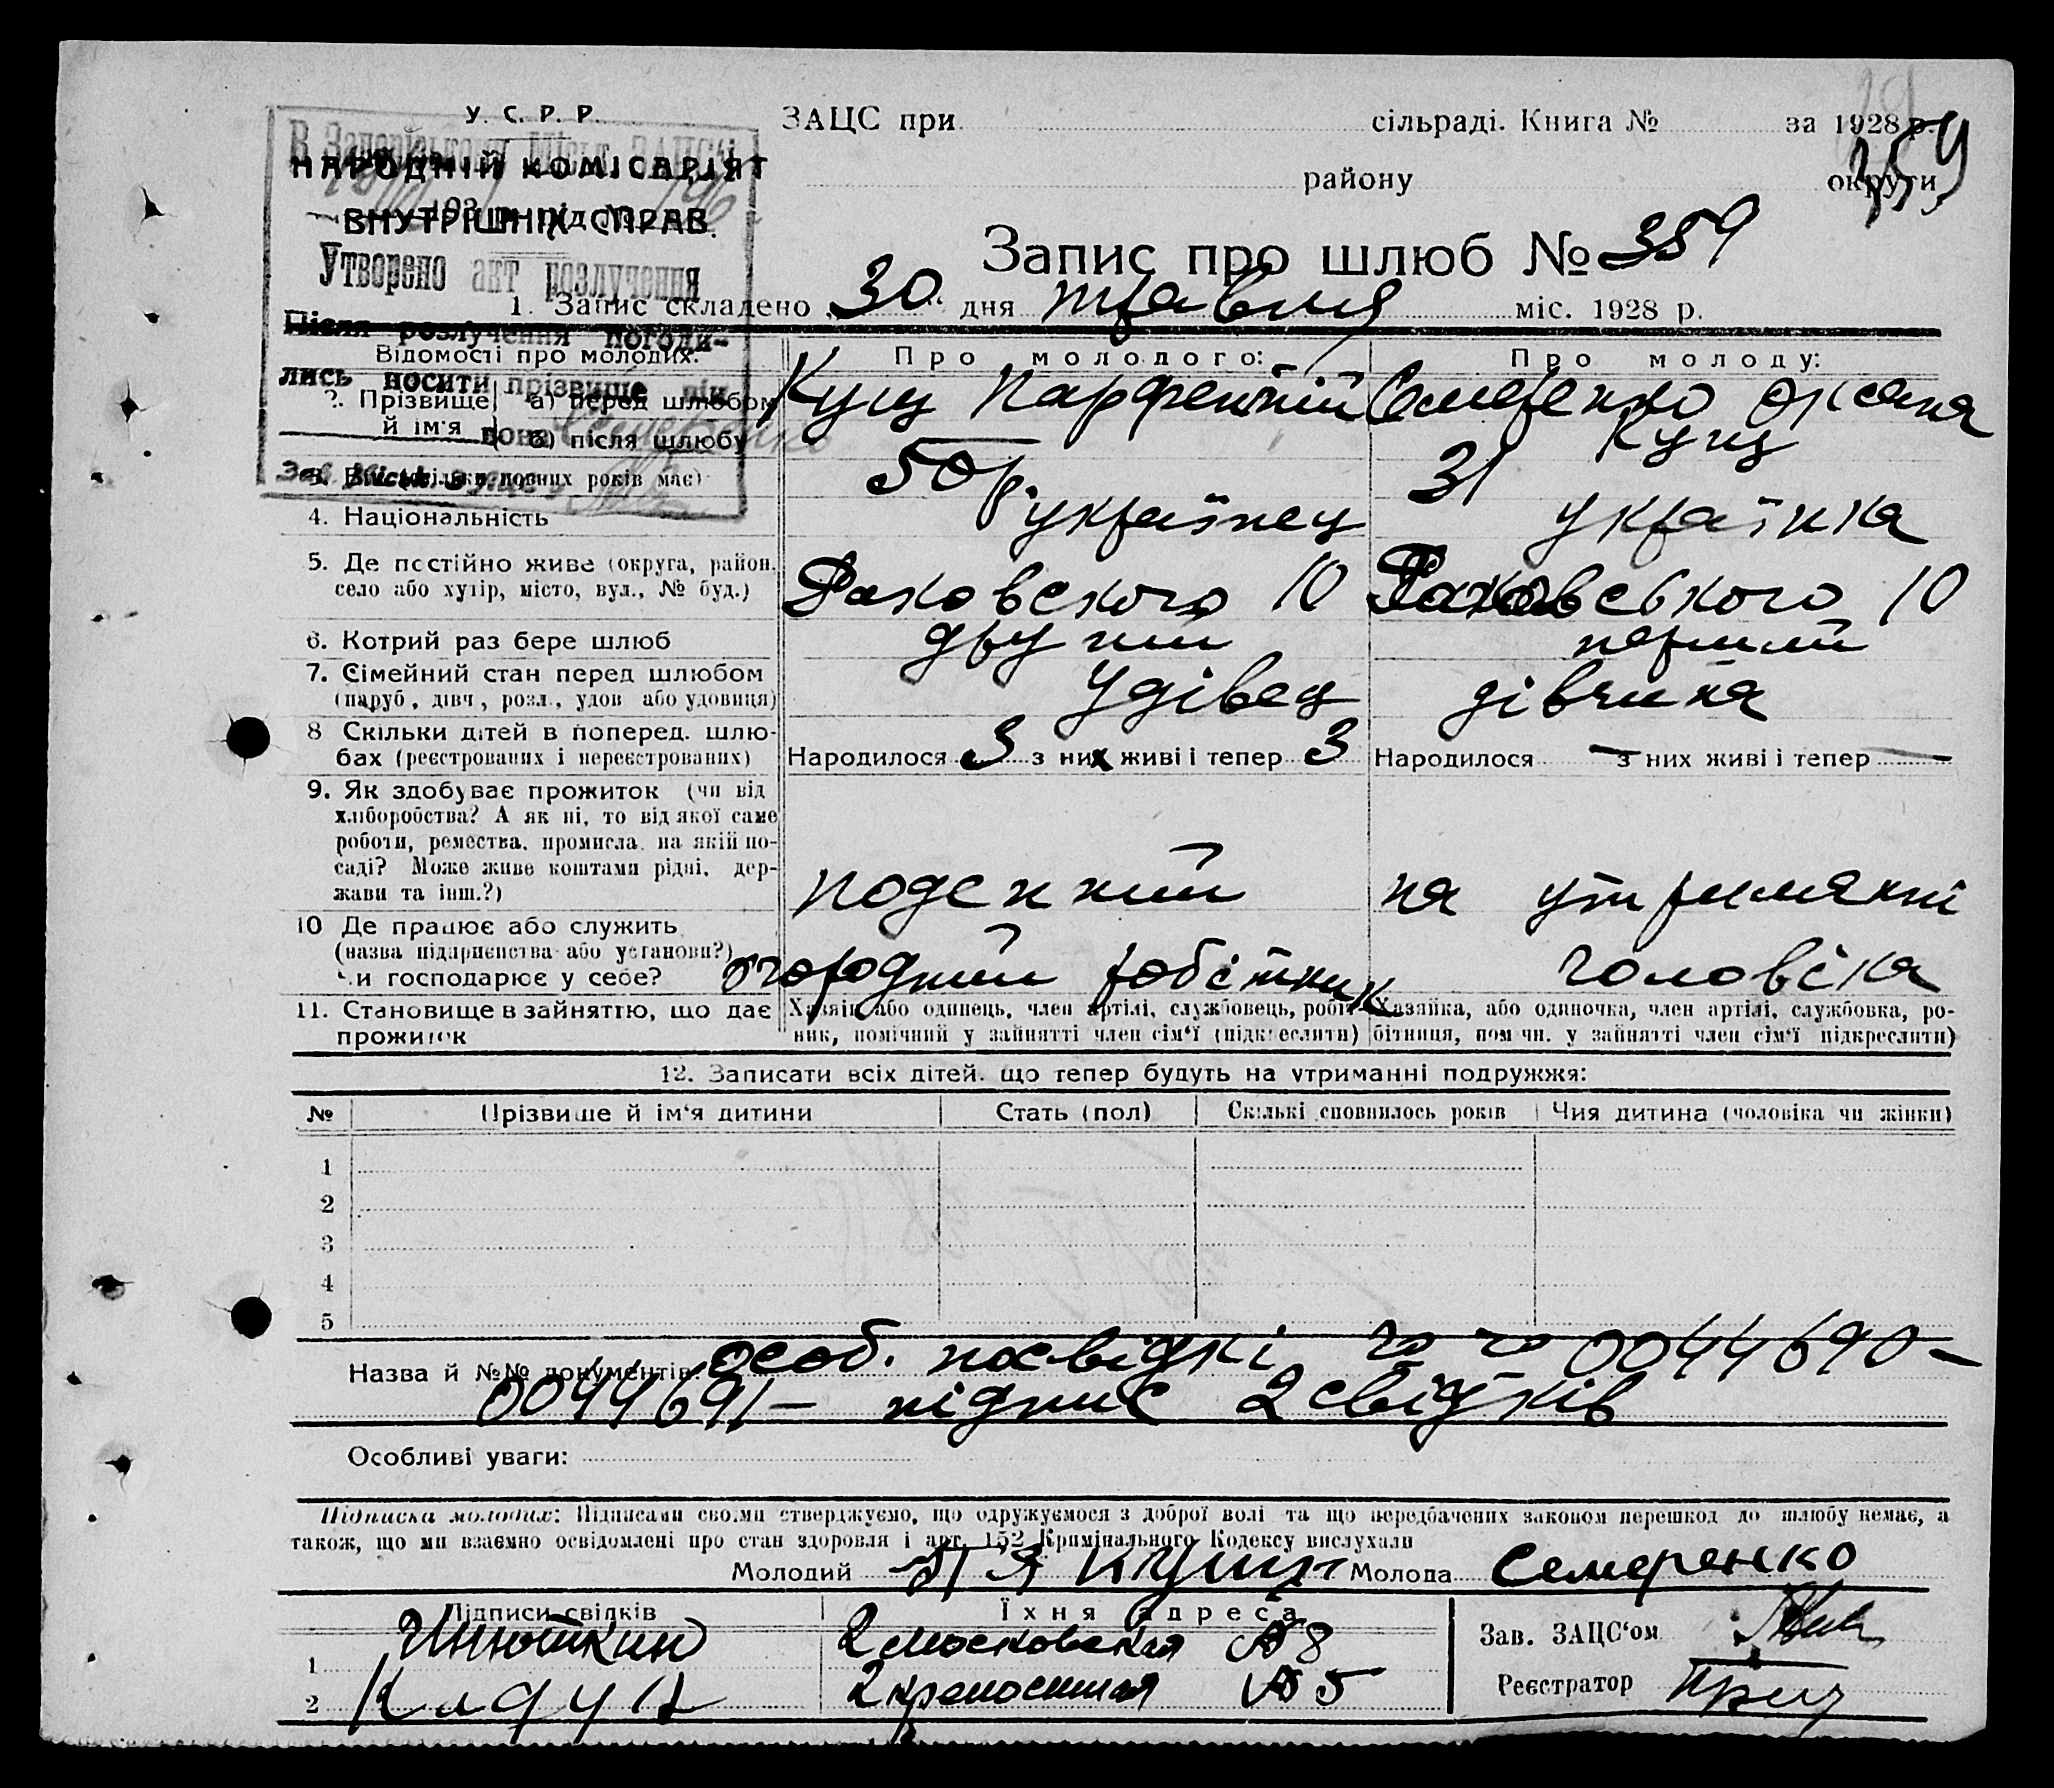 У. С. Р. Р.
НАРОДНІЙ КОМІСАРІЯТ
ВНУТРІШНІХ СПРАВ.
В Запорізькому Міськ. ЗАЦС'і
193 р. під №
Утворено акт розлучення
Після розлучення погоди-
лись носити прізвище він
вона
ЗАЦС при сільраді. Книга № за 1928 р.
району округи
359
Запис про шлюб № 359
1. Запис складено „30“ дня травня міс. 1928 р.
Відомості про молодих: Про молодого: Про молоду:
2. Прізвище й ім'я а) перед шлюбом Кущ Парфентій Семеренко Оксана
б) після шлюбу Кущ
3. Вік (скільки повних років має) 50 р 31
4. Національність українец українка
5. Де постійно живе (округа, район,
село або хутір, місто, вул., № буд.) Раковского 10 Раковського 10
6. Котрий раз бере шлюб другий перший
7. Сімейний стан перед шлюбом
(паруб., дівч., розл., удов або удовиця) Удівец дівчина
8 Скільки дітей в поперед. шлю-
бах (реєстрованих і нереєстрованих) Народилося 3 з них живі і тепер 3 Народилося — з них живі і тепер —
9. Як здобуває прожиток (чи від
хліборобства? А як ні, то від якої саме
роботи, ремества, промисла, на якій по-
саді? Може живе коштами рідні, дер-
жави та інш.?) поденний на утриманні
10 Де працює або служить
(назва підприємства або установи?)
Чи господарює у себе? огородний робітник чоловіка
11. Становище в зайняттю, що дає
прожиток
Хазяїн або одинець, член артілі, службовець, робіт-
ник, помічний у зайнятті член сім'ї (підкреслити)
Хазяйка, або одиночка, член артілі, службовка, ро-
бітниця, помічн. у зайнятті член сім'ї підкреслити)
12. Записати всіх дітей, що тепер будуть на утриманні подружжя:
№ Прізвище й ім'я дитини Стать (пол) Скількі сповнилось років Чия дитина (чоловіка чи жінки)
1
2
3
4
5
Назва й №№ документів: особ. посвідкі 0044690 —
0044691 — підпис 2 свідків
Особливі уваги:
Підписка молодих: Підписами своїми стверджуємо, що одружуємося з доброї волі та що передбачених законом перешкод до шлюбу немає, а
також, що ми взаємно освідомлені про стан здоровля і арт. 152 Кримінального Кодексу вислухали
Молодий Кущ Молода Семеренко
Підписи свідків Їхня адреса Зав. ЗАЦС'ом
1 2 Московская № 8
2 2 крепостная № 5 Реєстратор